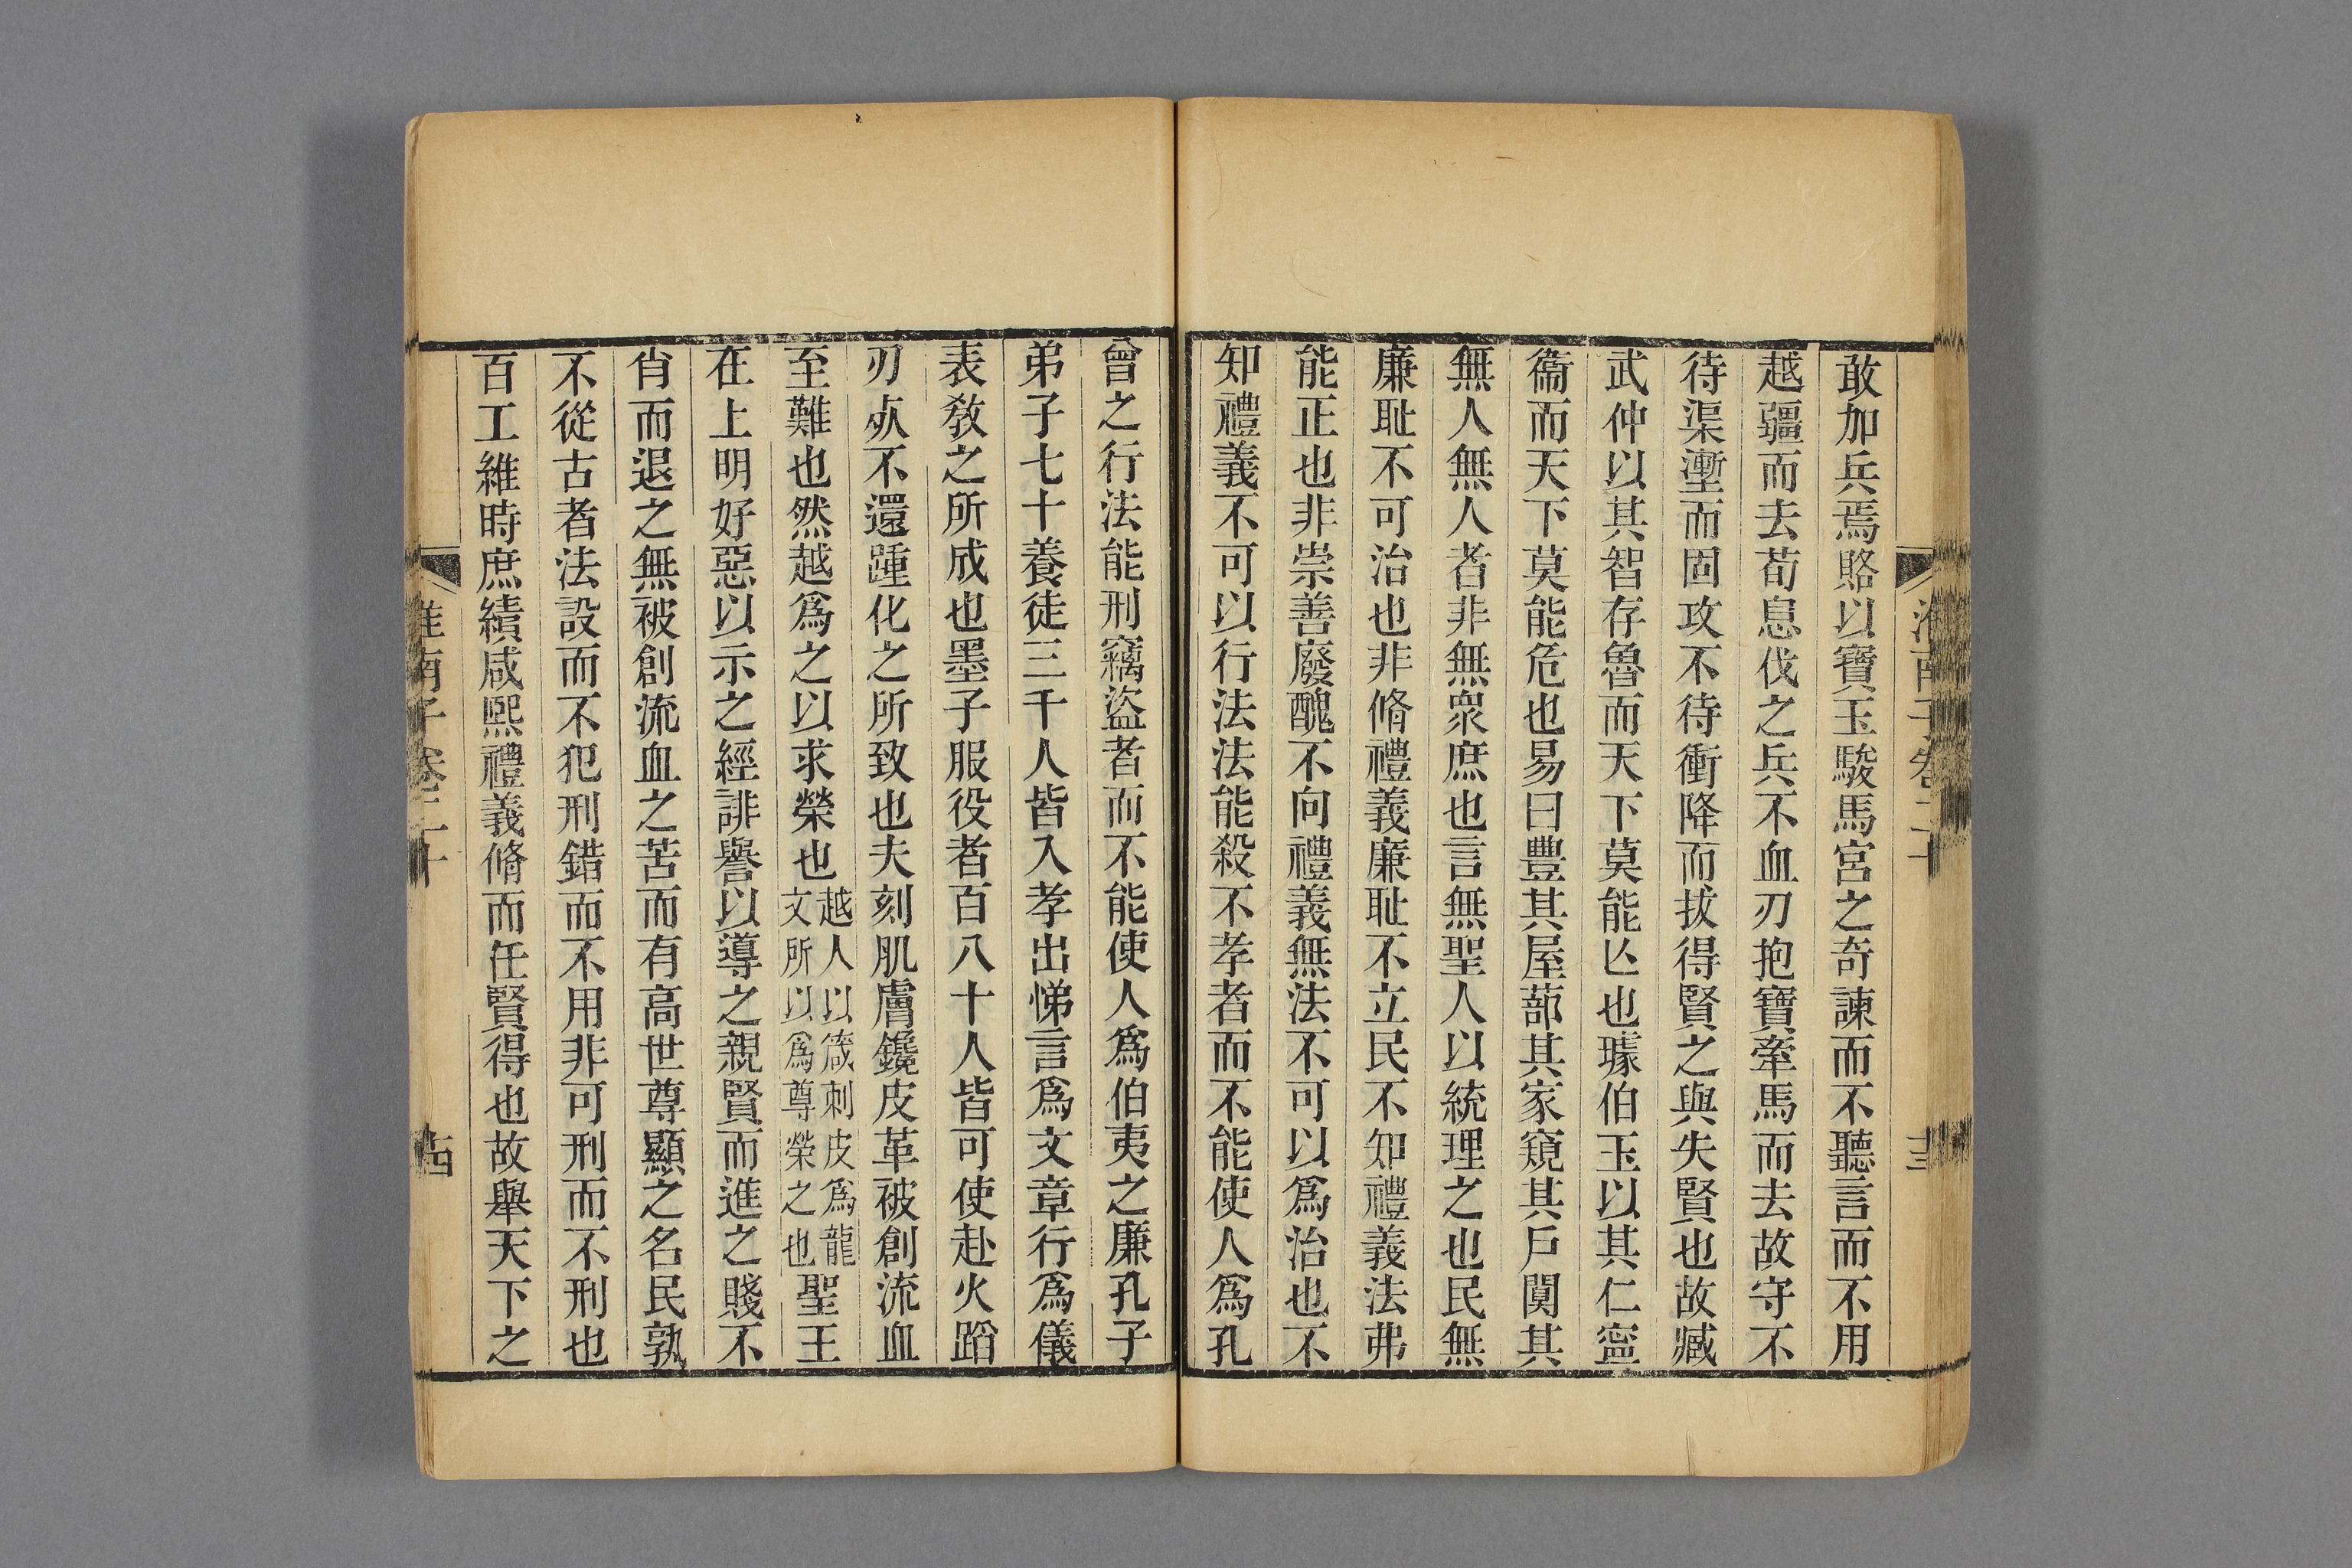 敢加兵焉賂以寶玉駿馬宮之奇諫而不聽言而不用
越疆而去荀息伐之兵不血刃抱寶牽馬而去故守不
待渠壍而固攻不待衝降而拔得賢之與失賢也故臧
武仲以其智存魯而天下莫能亾也璩伯玉以其仁寍
衞而天下莫能危也易曰豐其屋蔀其家窺其戸闃其
無人無人者非無衆庶也言無聖人以統理之也民無
廉耻不可治也非脩禮義廉耻不立民不知禮義法弗
能正也非崇善廢醜不向禮義無法不可以爲治也不
知禮義不可以行法法能殺不孝者而不能使人爲孔
淮南子卷二十
十三
曾之行法能刑竊盜者而不能使人爲伯夷之廉孔子
弟子七十養徒三千人皆入孝出悌言爲文章行爲儀
表敎之所成也墨子服役者百八十人皆可使赴火蹈
刃𣦸不還踵化之所致也夫刻肌膚鑱皮革被創流血
至難也然越爲之以求榮也
越人以箴刺皮爲龍
文所以爲尊榮之也
聖王
在上明好惡以示之經誹譽以導之親賢而進之賤不
肖而退之無被創流血之苦而有高世尊顯之名民孰
不從古者法設而不犯刑錯而不用非可刑而不刑也
百工維時庶績咸熙禮義脩而任賢得也故舉天下之
淮南子卷二十
十四